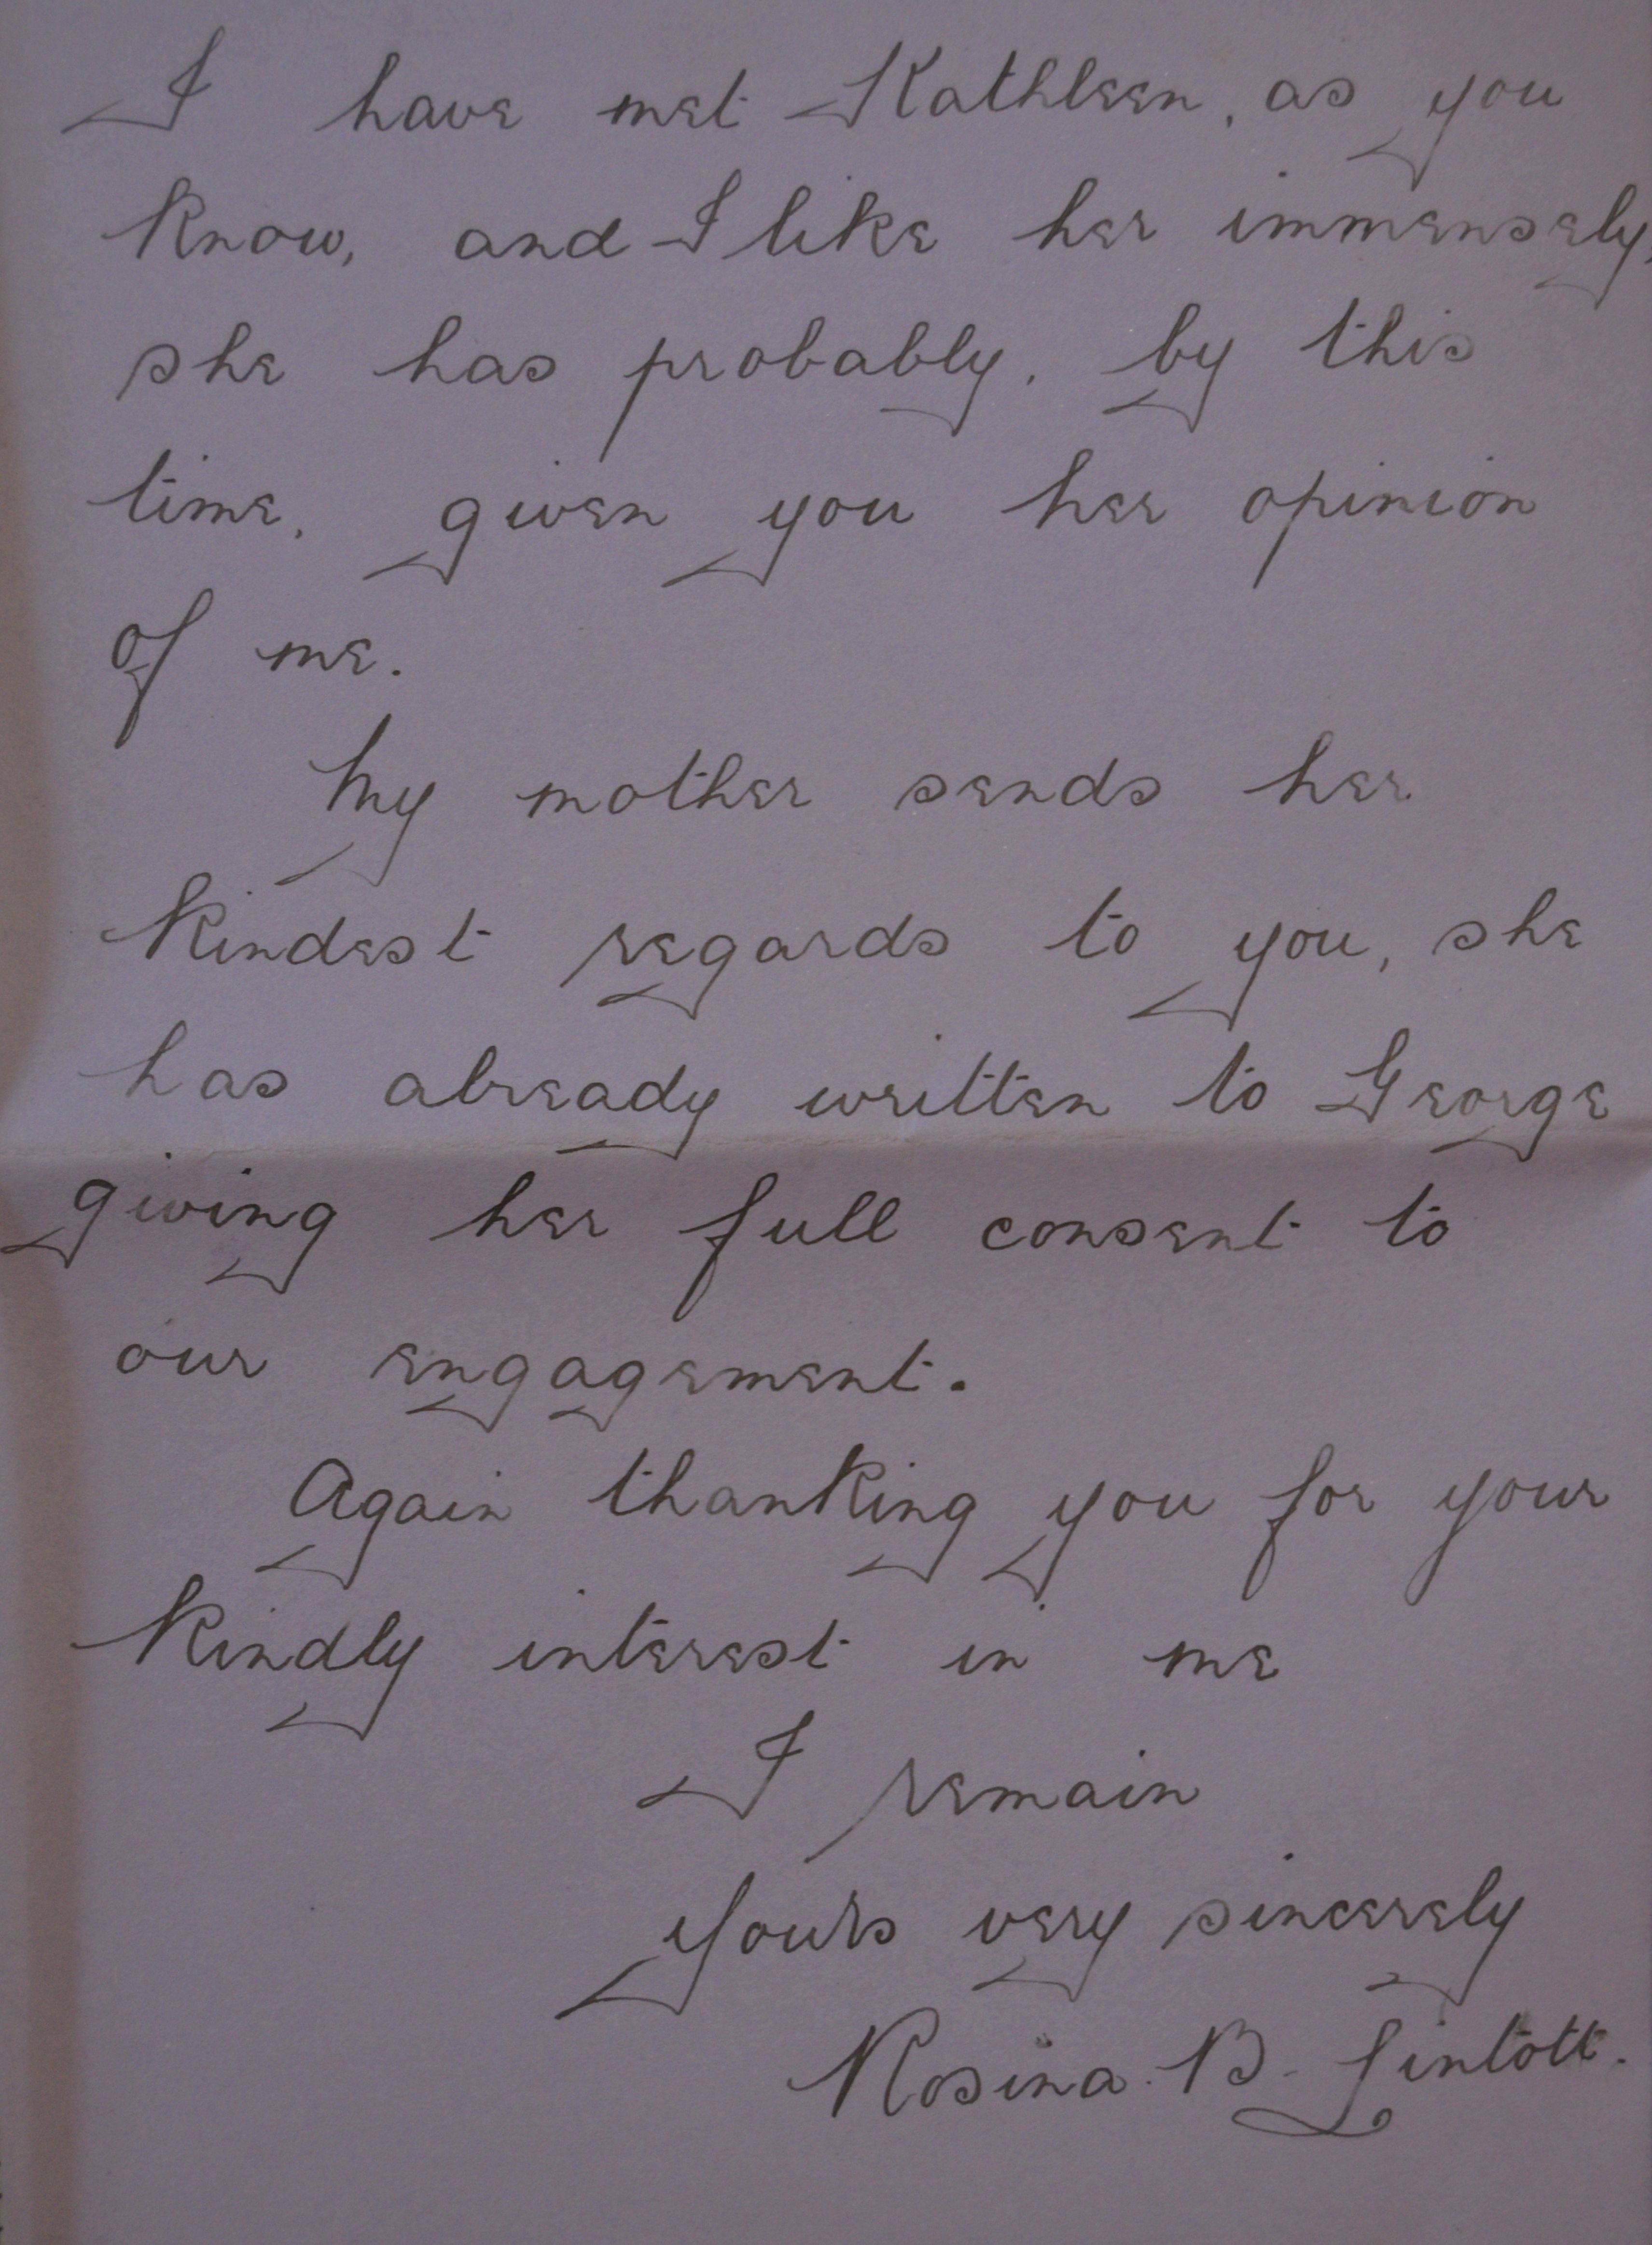 I have met Kathleen, as you
know, and I like her immensely,
she has probably, by this
time, given you her opinion
of me.
My mother sends her
kindest regards to you, she
has already written to George
giving her full consent to
our engagement.
Again thanking you for your
kindly interest in me
I remain
Yours very sincerely
Rosina. B. Lintott.